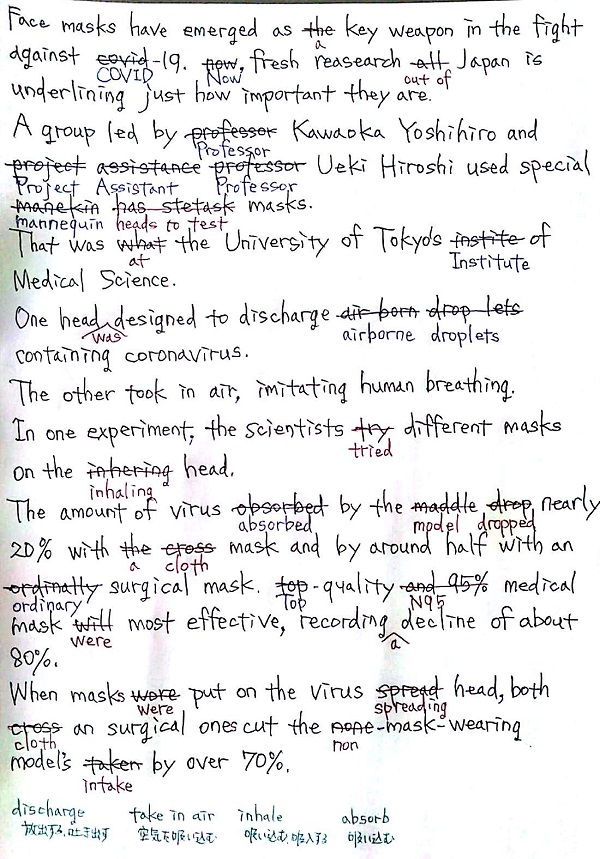 Face masks have emerged as the key weapon in the fight
a
against covid-19. now, fresh reasearch all Japan is
COVID Now out of
underlining just how important they are.
A group led by professor Kawaoka Yoshihiro and
Professor
project assistance professor Ueki Hiroshi used special
Project Assistant Professor
manekin has stetask masks.
mannequin heads to test
That was what the University of Tokyo's institute of
at Institute
Medical Science.
One head designed to discharge air born drop lets
was airborne droplets
containing coronavirus.
The other took in air, imitating human breathing.
In one experiment, the scientists try different masks
tried
on the inhering head.
inhaling
The amount of virus obsorbed by the maddle drop nearly
absorbed model dropped
20% with the cross mask and by around half with an
a cloth
ordinally surgical mask. top-quality and 95% medical
ordinary Top N95
mask will most effective, recording decline of about
were a
80%.
When masks wore put on the virus spread head, both
were spreading
cross an surgical ones cut the none-mask-wearing
cloth non
model's taken by over 70%.
intake
discharge take in air inhale absorb
放出する、吐き出す 空気を吸い込む 吸い込む、吸入する 吸い込む